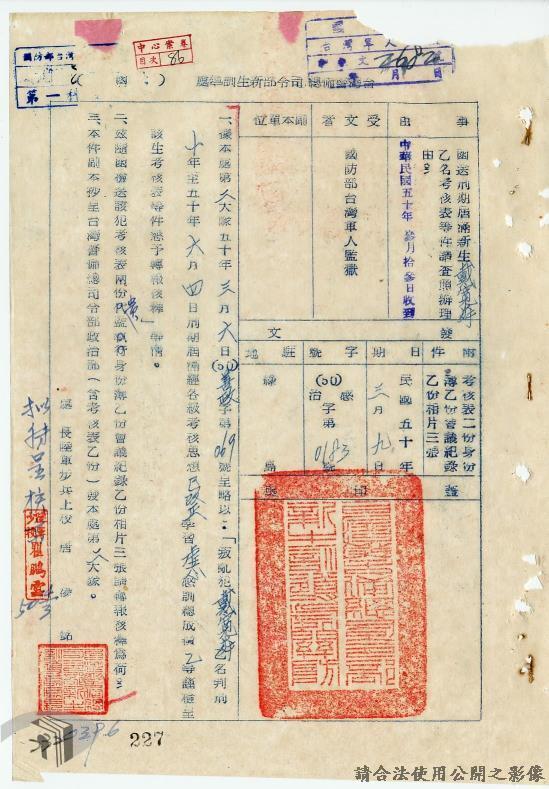 國防部台灣
第一科
中心業務
目次 86
台灣警備總司令部新生訓導處
函
事由
函送刑期屆滿新生戴
乙名考核表等件請查照辦理
受文者
國防部台灣軍人監獄
中華民國五十年參月拾參日收到
副本單位
發文
附件
考核表二份身份
簿乙份會議紀錄
乙份相片三張
日期
民國五十年
三月九日
字號
(50)感
治字第
0183號
駐地
綠島
一、據本處第六大隊五十年三月六日(50)
字第069號呈略以：「叛亂犯戴
乙名判刑
十年至五十年六月四日刑期屆滿經各級考核思想已改正學習
感訓總成績乙等謹檢呈
該生考核表等件恳予轉報核釋」等情。
二、玆隨函檢送該犯考核表兩份代監執行身份簿乙份會議紀錄乙份相片三張請轉報核釋為荷：
三、本件副本抄呈台灣警備總司令部政治部（含考核表乙份）發本處第六大隊。
處長陸軍步兵上校唐
銘
擬持呈核
227
請合法使用公開之影像